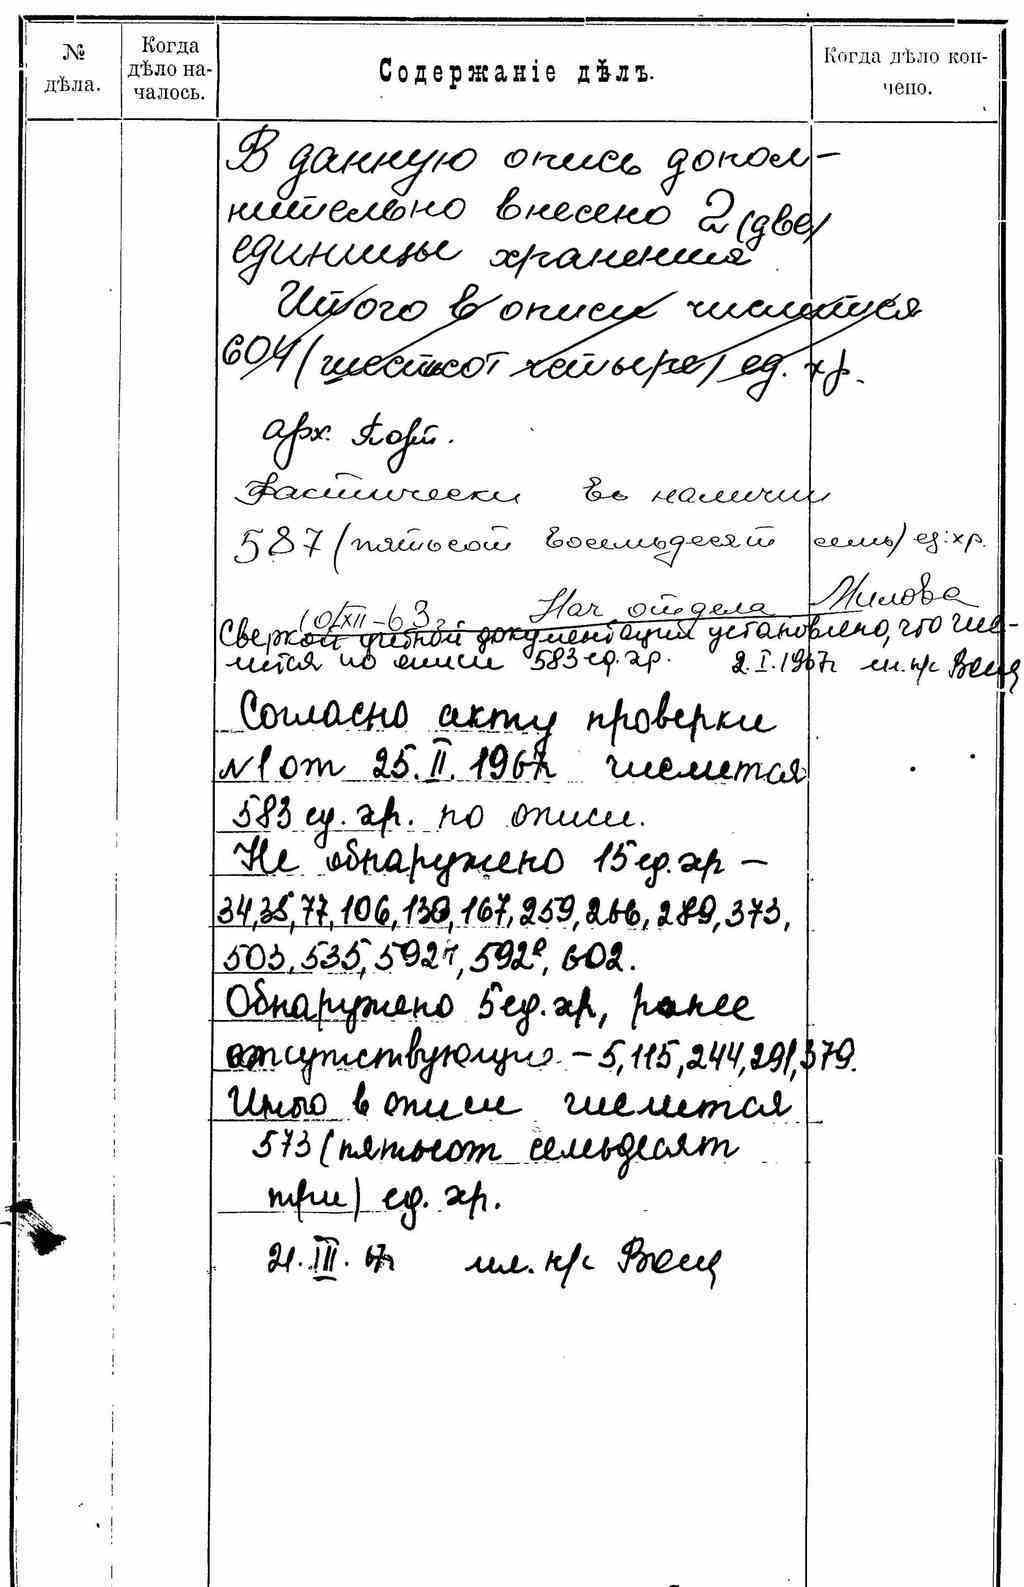 №
дѣла.
Когда
дѣло на-
чалось.
Содержаніе дѣлъ.
Когда дѣло кон-
чено.
В данную опись допол-
нительно внесено 2 (две)
единицы хранения
Итого в описи числится
604 (шестьсот четыре) ед. хр.
арх.
Фактически в наличии
587 (пятьсот восемьдесят семь) ед. хр.
10/XII-63г. Нач. отдела Милова
Сверкой учетной документации установлено, что чис-
лится по описи 583 ед. хр. 2.I.1967г. мл. н/с
Согласно акту проверки
№1 от 25.II.1967г. числится
583 ед. хр. по описи.
Не обнаружено 15 ед. хр —
34, 35, 77, 106, 167, 259, 266, 289, 373,
503, 535, 602.
Обнаружено 5 ед. хр, ранее
отсутствующие - 5, 115, 244, 291, 379.
Итого в описи числится
573 (пятьсот семьдесят
три) ед. хр.
21.III.67г мл. н/с